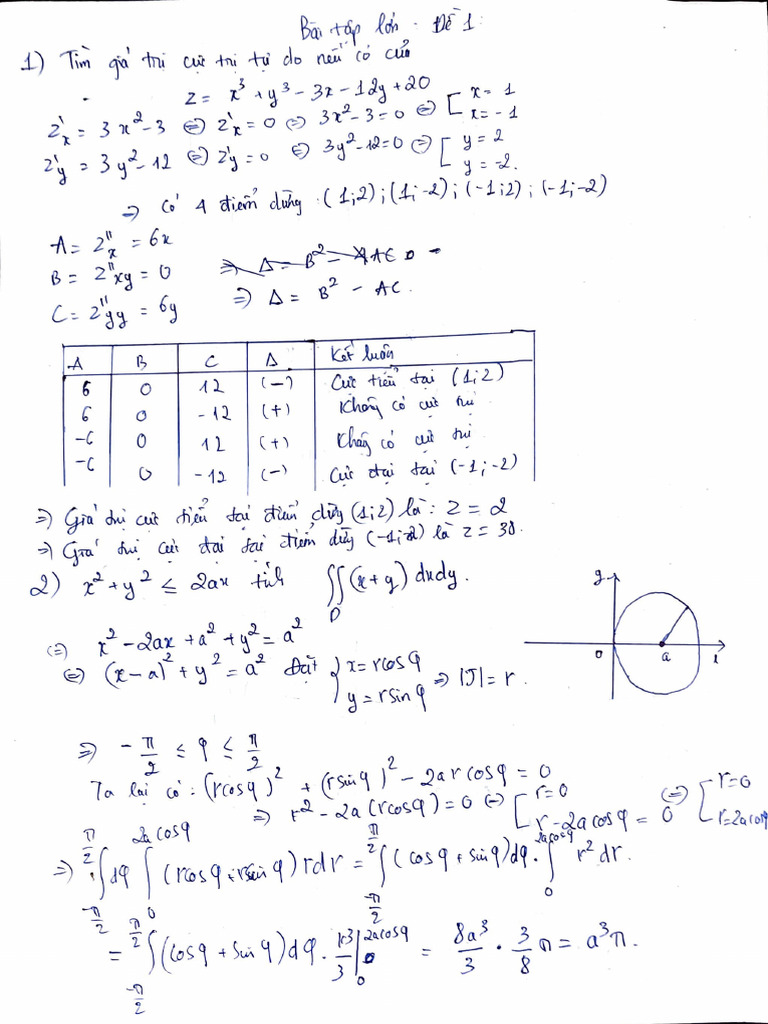 Bài tập lớn - Đề 1.
1) Tìm giá trị cực trị tự do nếu có của
z = x³ + y³ - 3x - 12y + 20
z'x = 3x² - 3 ⇔ z'x = 0 ⇔ 3x² - 3 = 0 ⇔ [ x = 1 x = -1
z'y = 3y² - 12 ⇔ z'y = 0 ⇔ 3y² - 12 = 0 ⇔ [ y = 2 y = -2.
⇒ Có 4 điểm dừng (1;2) ; (1;-2) ; (-1;2) ; (-1;-2)
A = z''x = 6x
B = z''xy = 0
⇒ Δ = B² - AC.
C = z''yy = 6y
A B C Δ Kết luận
6 0 12 (-) Cực tiểu tại (1;2)
6 0 -12 (+) Không có cực trị
-6 0 12 (+) Không có cực trị
-6 0 -12 (-) Cực đại tại (-1;-2)
⇒ Giá trị cực tiểu tại điểm dừng (1;2) là: z = 2
⇒ Giá trị cực đại tại điểm dừng (-1;-2) là z = 38.
2) x² + y² ≤ 2ax tính ∬D (x+y) dxdy.
⇔ x² - 2ax + a² + y² = a²
⇔ (x-a)² + y² = a² Đặt { x = rcosφ y = rsinφ ⇒ |J| = r.
y
0 a x
⇒ -π/2 ≤ φ ≤ π/2
Ta lại có: (rcosφ)² + (rsinφ)² - 2arcosφ = 0
⇒ r² - 2a(rcosφ) = 0 ⇔ [ r = 0 r - 2acosφ = 0 ⇔ [ r = 0 r = 2acosφ
⇒ ∫_{-π/2}^{π/2} dφ ∫_0^{2acosφ} (rcosφ + rsinφ) r dr = ∫_{-π/2}^{π/2} (cosφ + sinφ) dφ . ∫_0^{2acosφ} r² dr.
= ∫_{-π/2}^{π/2} (cosφ + sinφ) dφ . r³/3 |_0^{2acosφ} = 8a³/3 . 3/8 π = a³π.